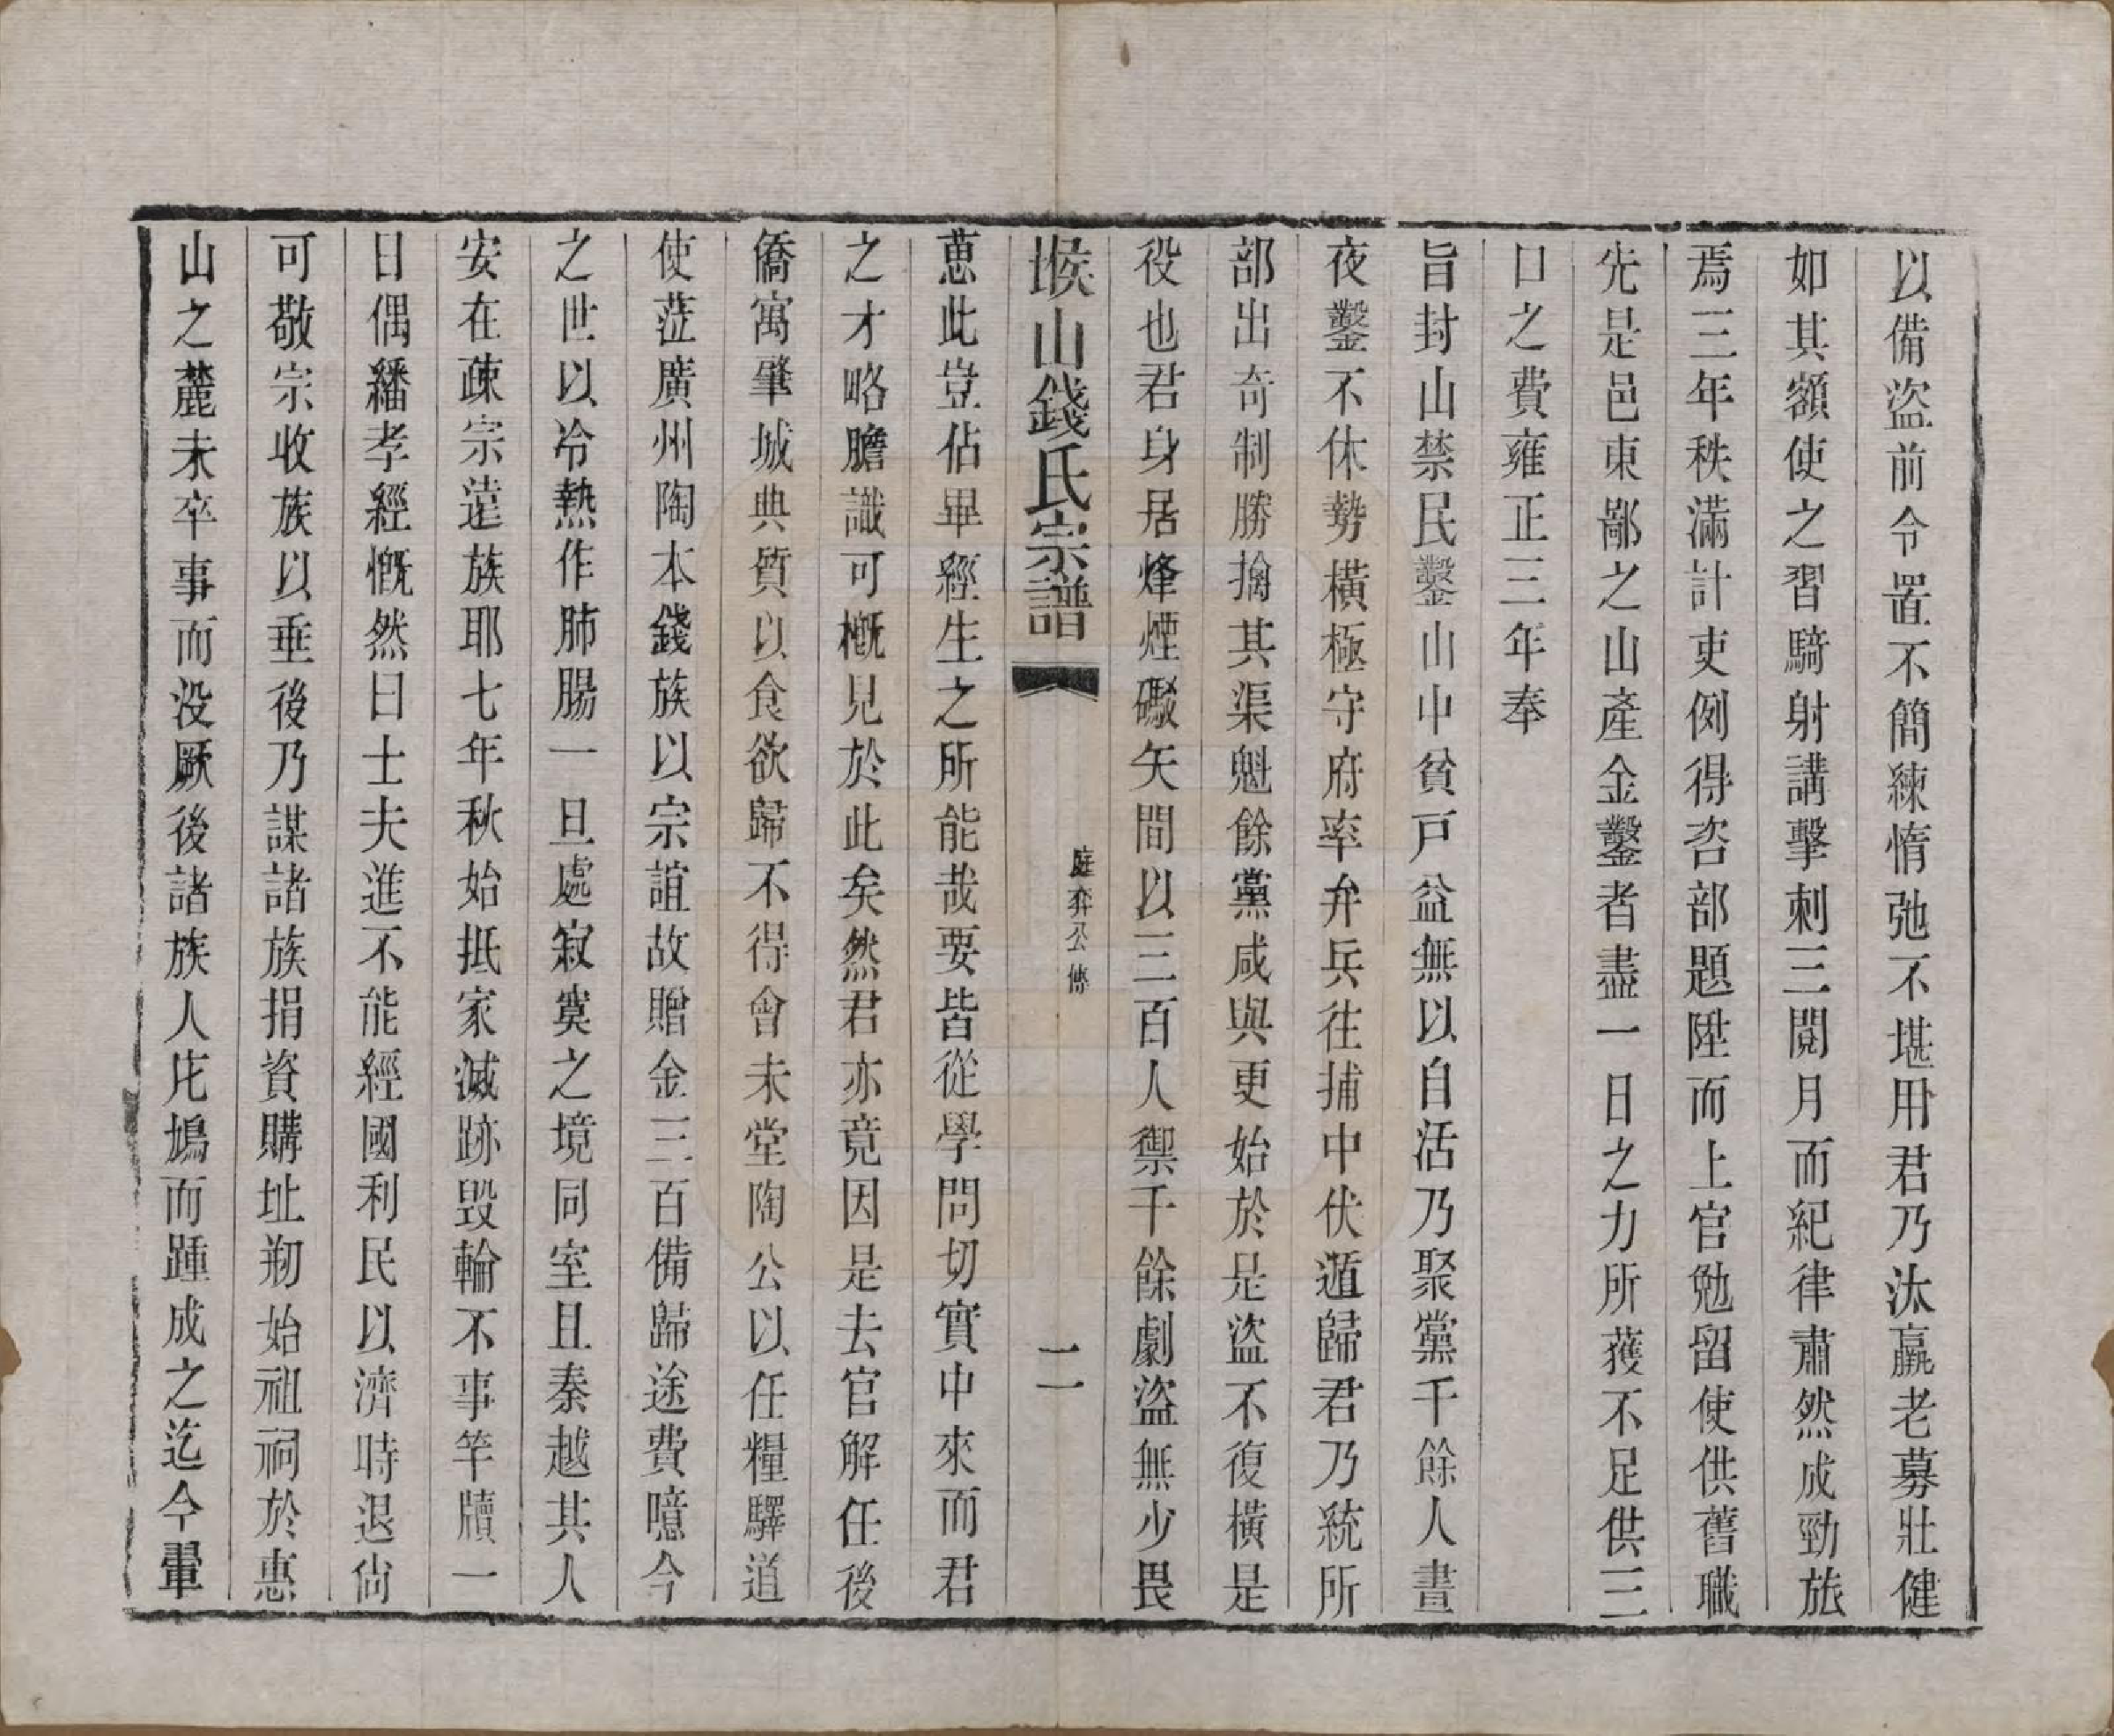 以備盜前令置不簡練惰弛不堪用君乃汰羸老募壯健
如其額使之習騎射講擊刺三閱月而紀律肅然成勁旅
焉三年秩滿計吏例得咨部題陞而上官勉留使供舊職
先是邑東鄙之山產金鑿者盡一日之力所獲不足供三
口之費雍正三年奉
旨封山禁民鑿山中貧戸益無以自活乃聚黨千餘人晝
夜鑿不休勢橫極守府率弁兵往捕中伏遁歸君乃統所
部出奇制勝擒其渠魁餘黨咸與更始於是盜不復橫是
役也君身居烽煙礮矢間以三百人禦千餘劇盜無少畏
堠山錢氏宗譜
庭弈公傳
二
葸此豈佔畢經生之所能哉要皆從學問切實中來而君
之才略膽識可槪見於此矣然君亦竟因是去官解任後
僑寓肇城典質以食欲歸不得會未堂陶公以任糧驛道
使蒞廣州陶本錢族以宗誼故贈金三百備歸途費噫今
之世以冷熱作肺腸一旦處寂寞之境同室且秦越其人
安在疎宗遠族耶七年秋始抵家滅跡毀輪不事竿牘一
日偶繙孝經慨然曰士夫進不能經國利民以濟時退尙
可敬宗收族以垂後乃謀諸族捐資購址剏始祖祠於惠
山之麓未卒事而没厥後諸族人庀鳩而踵成之迄今翬